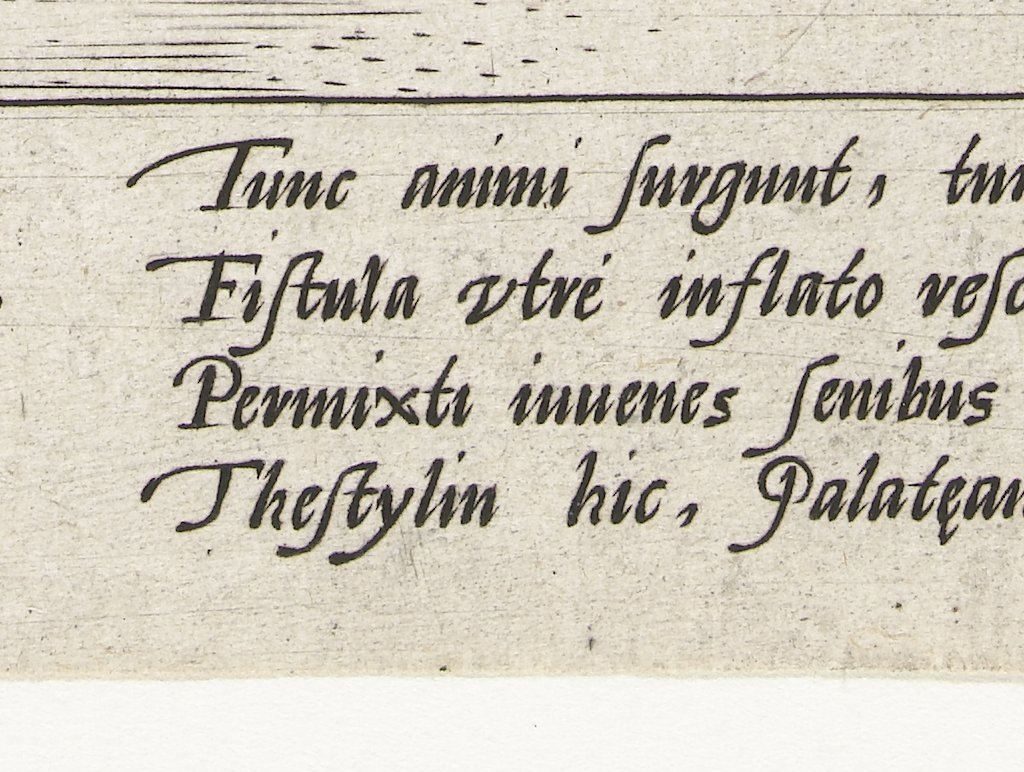 Tunc animi ſurgunt, tun
Fiſtula vtre inflato reſo
Permixti iuuenes ſenibus
Theſtylin hic, Palatęan